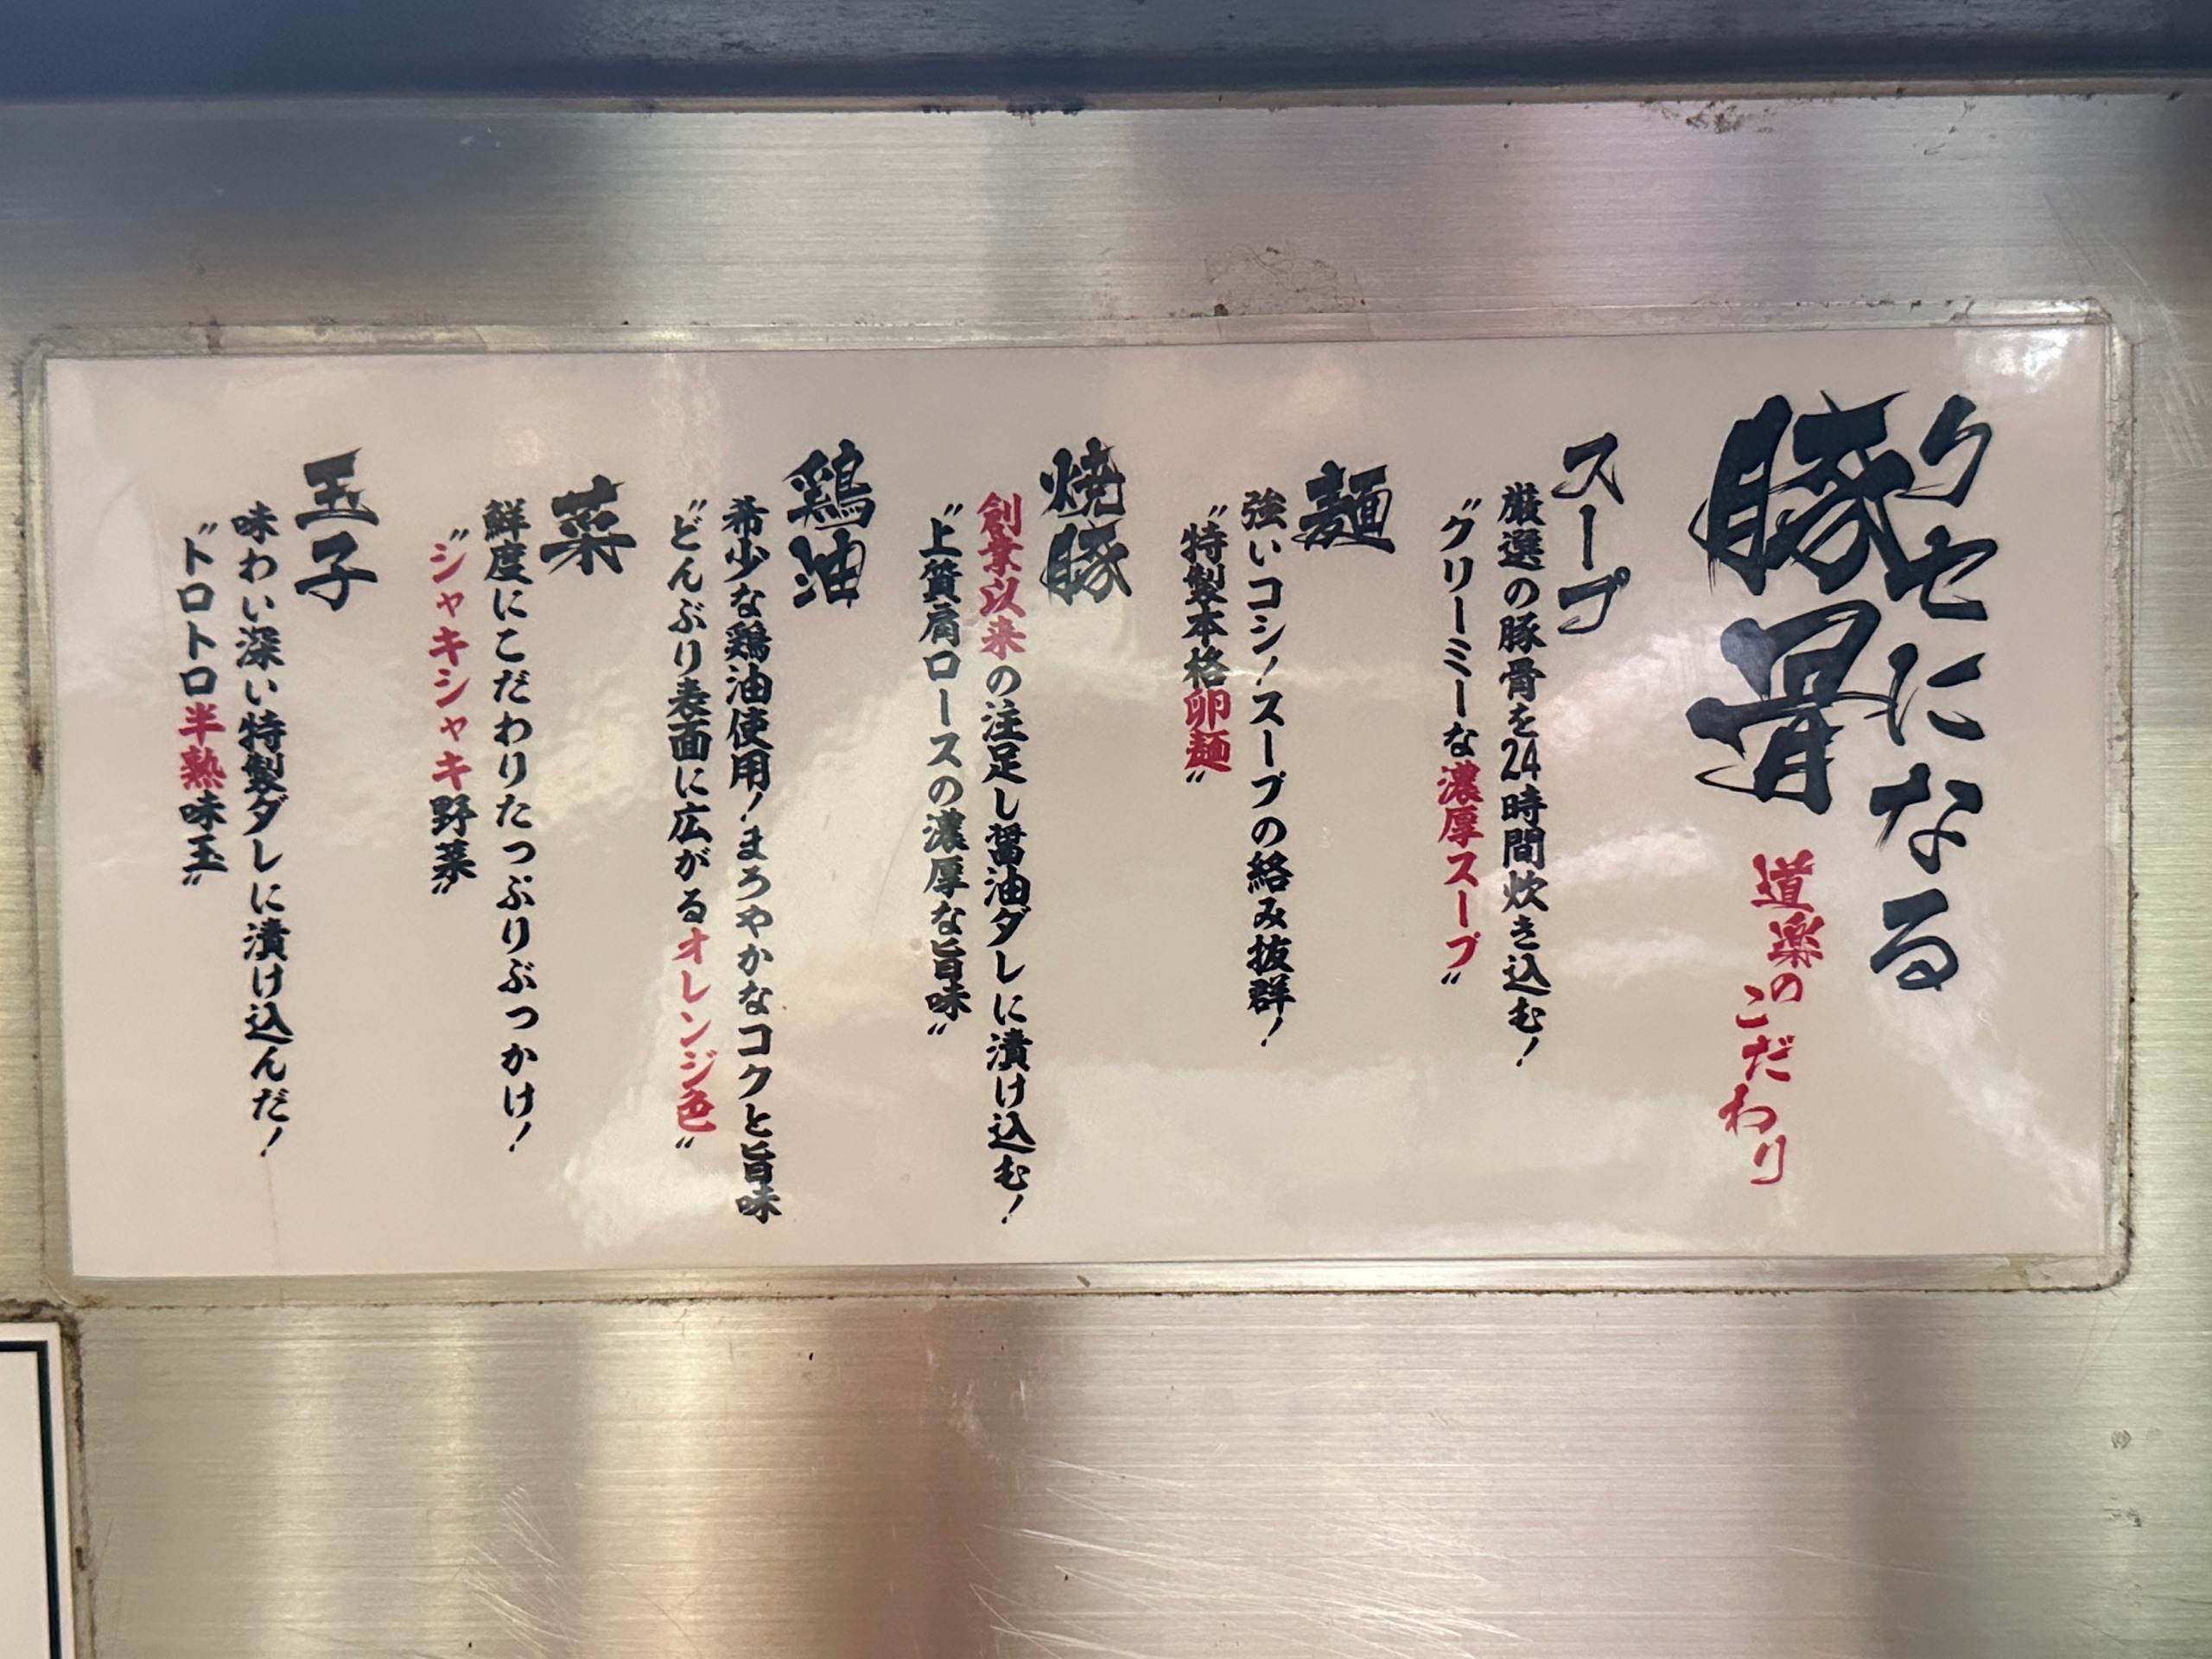 クセになる
豚骨 道楽のこだわり
スープ
厳選の豚骨を24時間炊き込む！
〝クリーミーな濃厚スープ〟
麺
強いコシ！スープの絡み抜群！
〝特製本格卵麺〟
焼豚
創業以来の注足し醤油ダレに漬け込む！
〝上質肩ロースの濃厚な旨味〟
鶏油
希少な鶏油使用！まろやかなコクと旨味
〝どんぶり表面に広がるオレンジ色〟
菜
鮮度にこだわりたっぷりぶっかけ！
〝シャキシャキ野菜〟
玉子
味わい深い特製ダレに漬け込んだ！
〝トロトロ半熟味玉〟